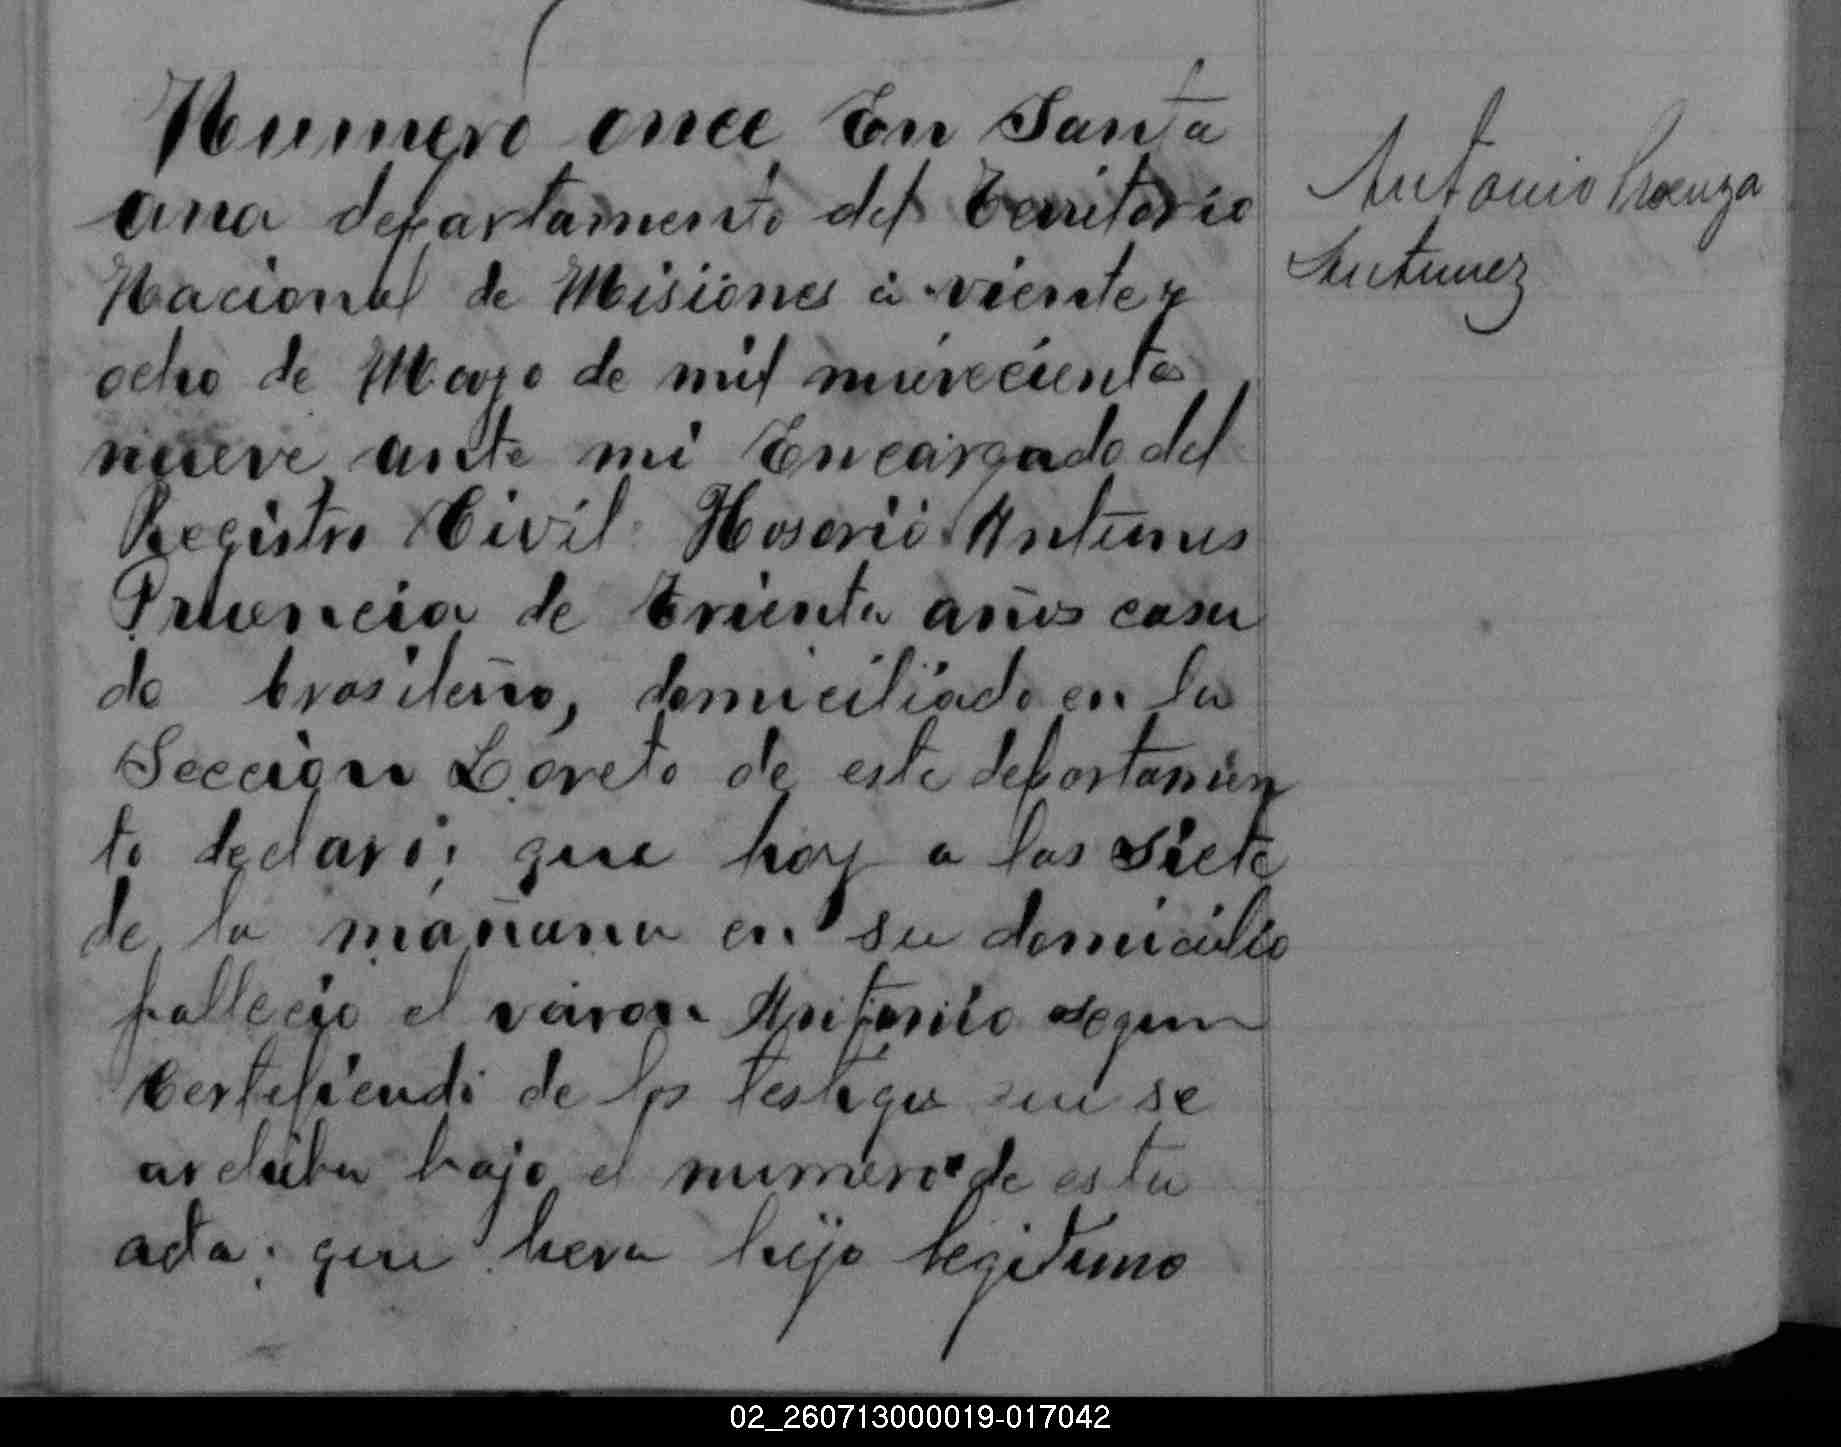 Numero once En Santa
ana departamento del Territorio
Nacional de Misiones a viente y
ocho de Mayo de mil nuvecienta
nueve, ante mi Encargado del
Registro Civil Hosorio Antunes
Pruencia de trienta años casa
do brasileño, domiciliado en la
Seccion Loreto de este departamen
to declaro; que hoy a las siete
de la mañana en su domicilio
fallecio el varon Antonio segun
de los testigos que se
archiba bajo el numero de esta
acta; que hera hijo legitimo
Antonio Proenza
Antunez
02_260713000019-017042